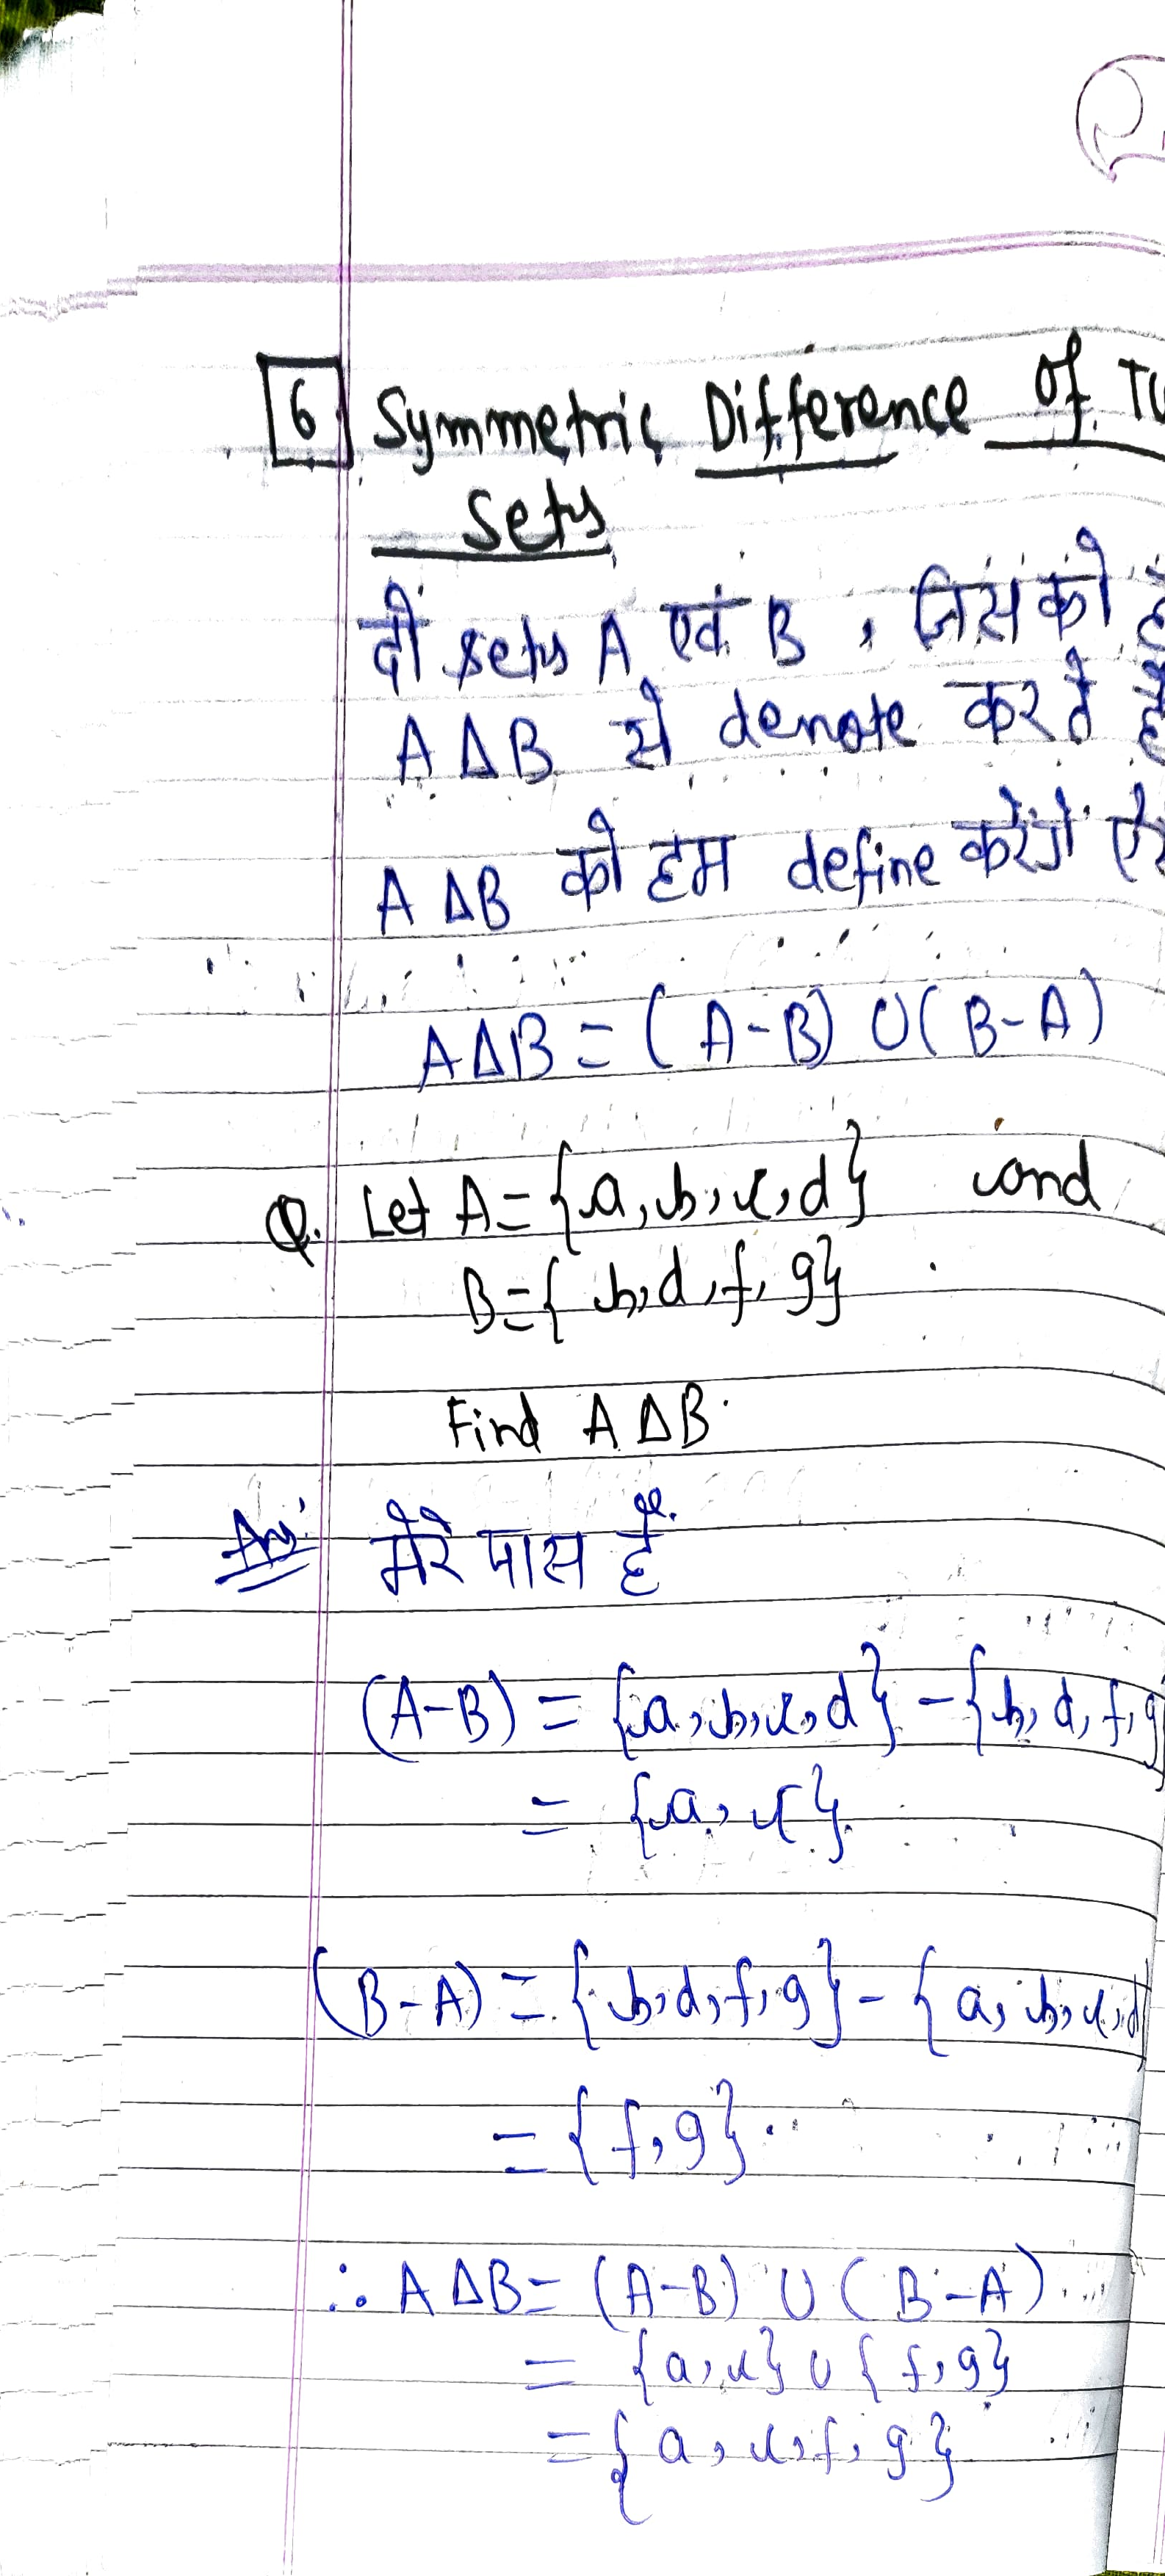 6 Symmetric Difference of
Sets
दो sets A एवं B , जिसको
A Δ B से denote करते
A Δ B को हम define करेंगे
A Δ B = ( A - B ) ∪ ( B - A )
Q. Let A = { a, b, c, d } and
B = { b, d, f, g }
Find A Δ B.
Ans: मेरे पास है
(A - B) = { a, b, c, d } - { b, d, f, g
= { a, c }.
(B - A) = { b, d, f, g } - { a, b, c, d
= { f, g }.
∴ A Δ B = (A - B) ∪ ( B - A )
= { a, c } ∪ { f, g }
= { a, c, f, g }